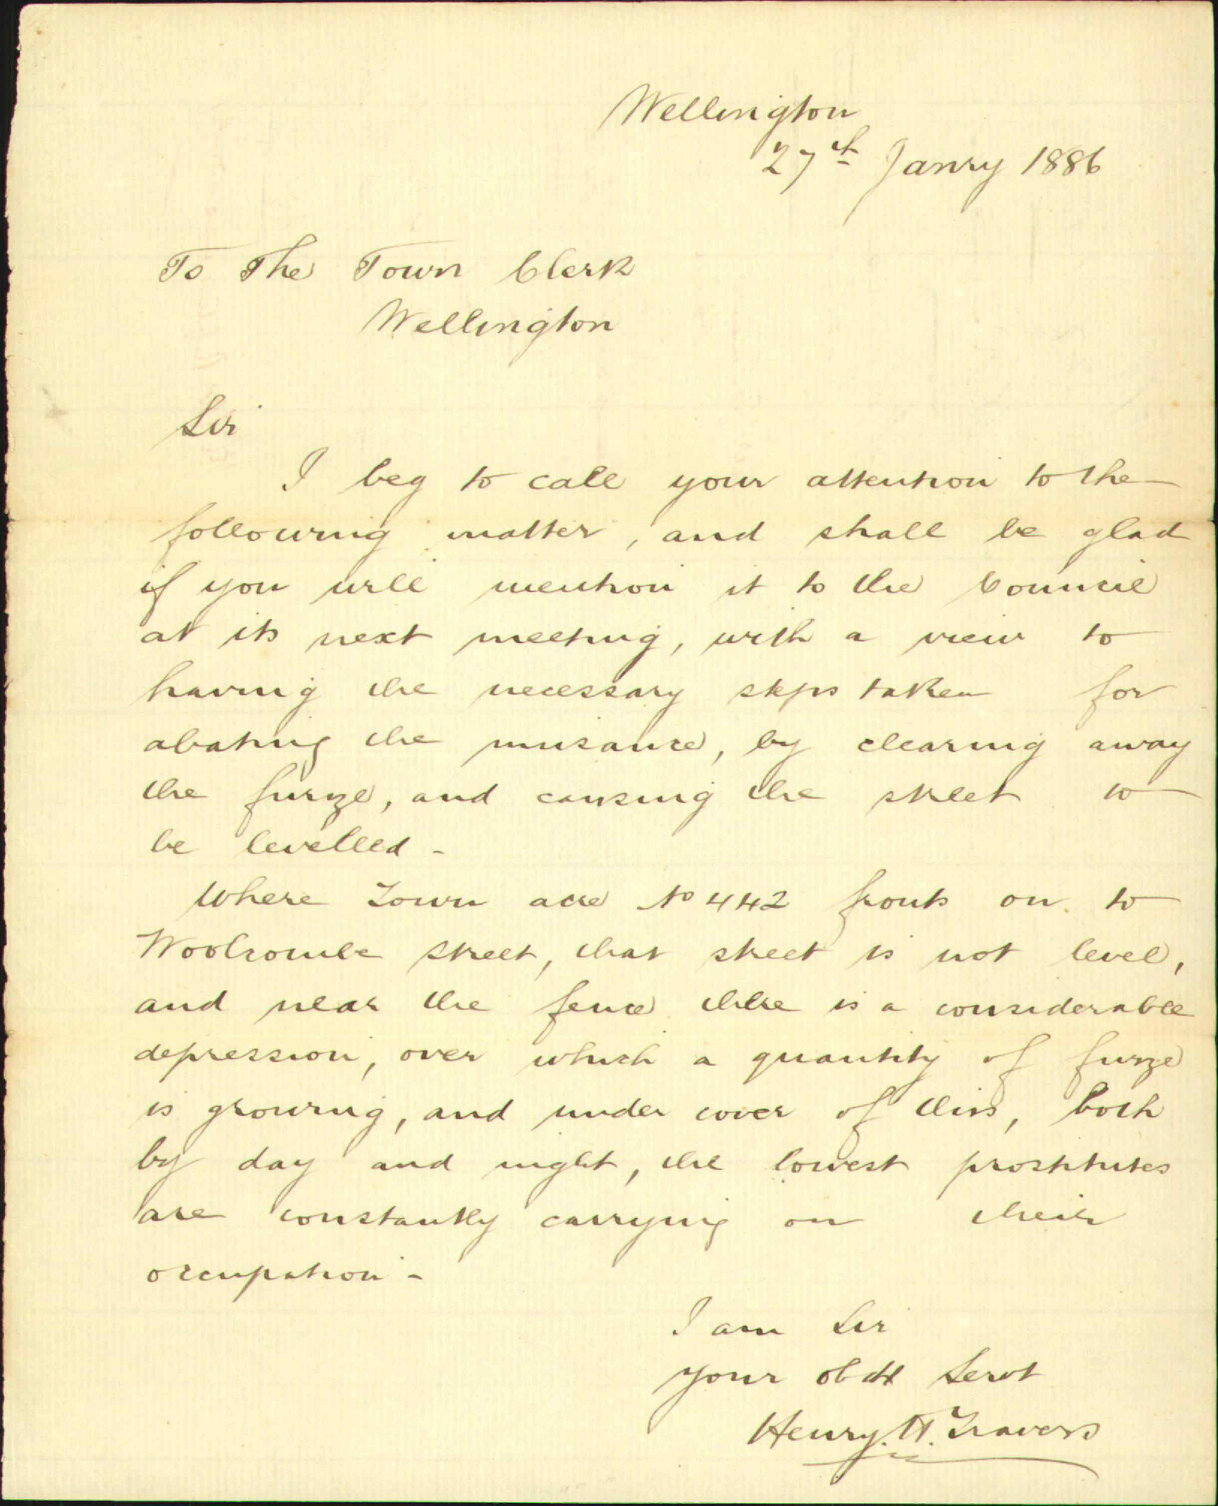 Wellington
27th Janry 1886
To The Town Clerk
Wellington
Sir
I beg to call your attention to the
following matter, and shall be glad
if you will mention it to the Council
at its next meeting, with a view to
having the necessary steps taken for
abating the nuisance, by clearing away
the furze, and causing the street to
be levelled -
Where Town acre No 442 fronts on to
Woolcombe street, that street is not level,
and near the fence there is a considerable
depression, over which a quantity of furze
is growing, and under cover of this, both
by day and night, the lowest prostitutes
are constantly carrying on their
occupation -
I am Sir
your obdt Servt
Henry. H. Travers